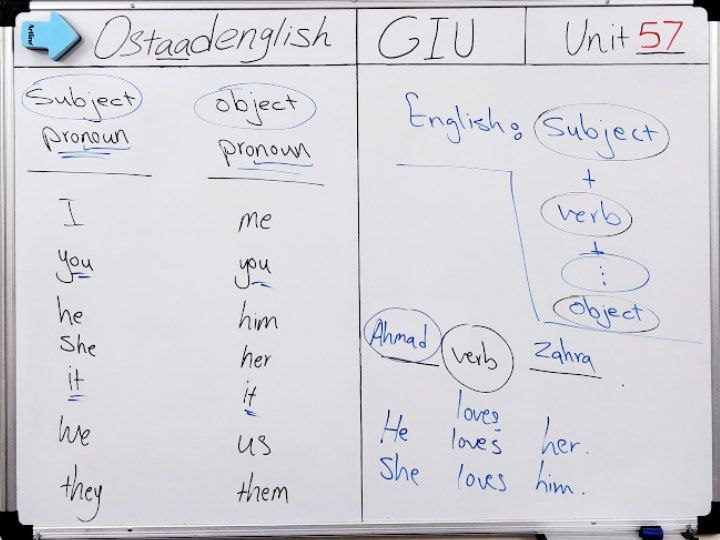 Artline
Ostaadenglish GIU Unit 57
Subject object
pronoun pronoun
I me
you you
he him
She her
it it
we us
they them
English: Subject
+
verb
+
⋮
object
Ahmad verb Zahra
loves
He loves her.
She loves him.